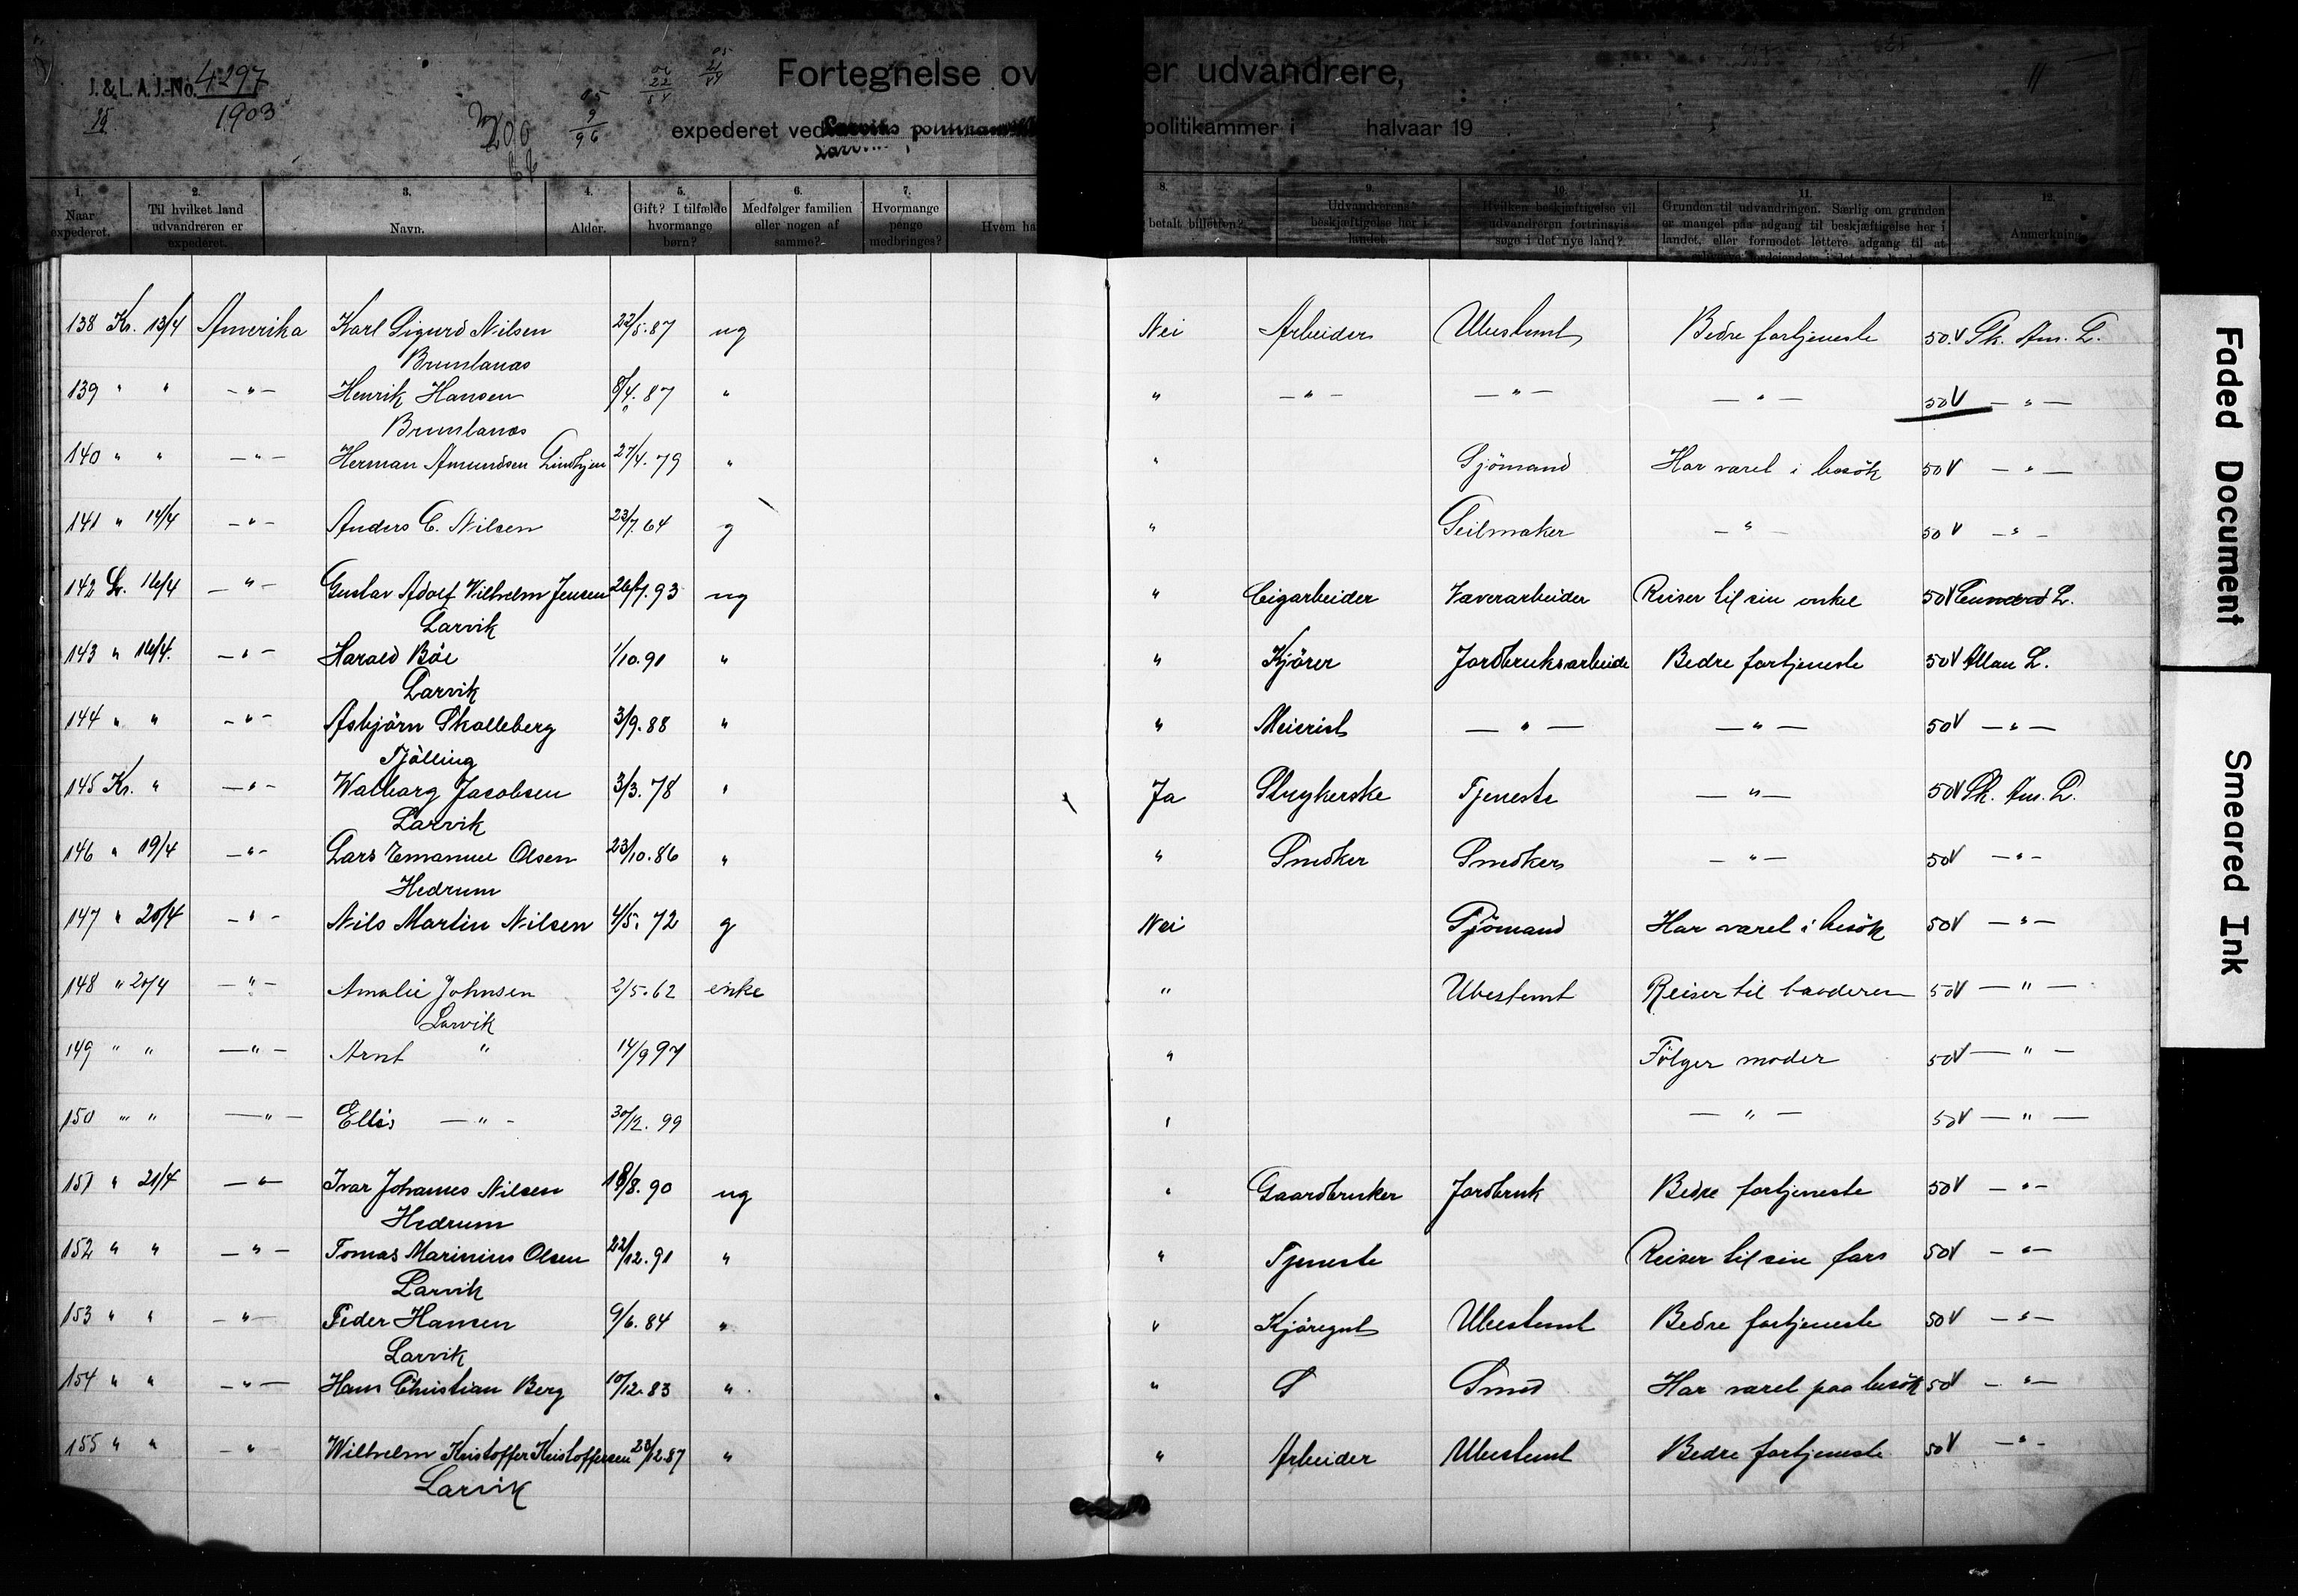 Fortegnelse over udvandrere,
J. & L. A. J.-No. 4297
1903
200
05
9
96
22
21
expederet ved Larviks politikammer i halvaar 19
1. 2. 3. 4. 5. 6. 7. 8. 9. 10. 11. 12.
Naar expederet. Til hvilket land udvandreren er expederet. Navn. Alder. Gift? I tilfælde hvormange børn? Medfølger familien eller nogen af samme? Hvormange penge medbringes? Hvem ha betalt billetten? Udvandrerens beskjæftigelse her i landet. Hvilken beskjæftigelse vil udvandreren fortrinsvis søge i det nye land? Grunden til udvandringen. Særlig om grunden er mangel paa adgang til beskjæftigelse her i landet, eller formodet lettere adgang til at Anmerkning
138 Kr. 13/4 Amerika Karl Sigurd Nilsen 22/5.87 ug Nei Arbeider Ubestemt Bedre fortjeneste 50.V Sk. Am. L.
Brunlanæs
139 " " — " — Henrik Hansen 8/4.87 " " — " — — " — — " — 50V — " —
Brunlanæs
140 " " — " — Herman Amundsen Lindhjem 27/4.79 " " Sjömand Har været i besök 50V — " —
141 " 14/4 — " — Anders C. Nilsen 23/7.64 g " Seilmaker — " — 50V — " —
142 Lr. 16/4 — " — Gustav Adolf Vilhelm Jensen 26/7.93 ug " Cigarbeider Væverarbeider Reiser til sin onkel 50V Cunard L.
Larvik
143 " 16/4. — " — Harald Böe 1/10.91 " " Kjörer Jordbruksarbeide Bedre fortjeneste 50V Allan L.
Larvik
144 " " — " — Asbjörn Skalleberg 3/9.88 " " Meierist — " — — " — 50V — " —
Tjölling
145 Kr. " — " — Walborg Jacobsen 3/3.78 " Ja Strykerske Tjeneste — " — 50V Sk. Am. L.
Larvik
146 " 19/4 — " — Lars Emanuel Olsen 23/10.86 " " Snedker Snedker — " — 50V — " —
Hedrum
147 " 20/4 — " — Nils Martin Nilsen 4/5.72 g Nei Sjömand Har været i besök 50V — " —
148 " 20/4 — " — Amalie Johnsen 2/5.62 enke " Ubestemt Reiser til broderen 50V — " —
Larvik
149 " " — " — Arnt " 14/9 97 " Fölger moder 50V — " —
150 " " — " — Ellis — " — 30/12.99 " — " — 50V — " —
151 " 21/4 — " — Ivar Johannes Nilsen 18/8.90 ug " Gaardbruker Jordbruk Bedre fortjeneste 50V — " —
Hedrum
152 " " — " — Tomas Marinius Olsen 22/12.91 " " Tjeneste Reiser til sin far 50V — " —
Larvik
153 " " — " — Peder Hansen 9/6.84 " " Kjöregut Ubestemt Bedre fortjeneste 50V — " —
Larvik
154 " " — " — Hans Christian Berg 10/12.83 " " S Smed Har været paa besök 50V — " —
155 " " — " Wilhelm Kristoffer Kristoffersen 23/12.87 " " Arbeider Ubestemt Bedre fortjeneste 50V — " —
Larvik
Faded Document
Smeared Ink